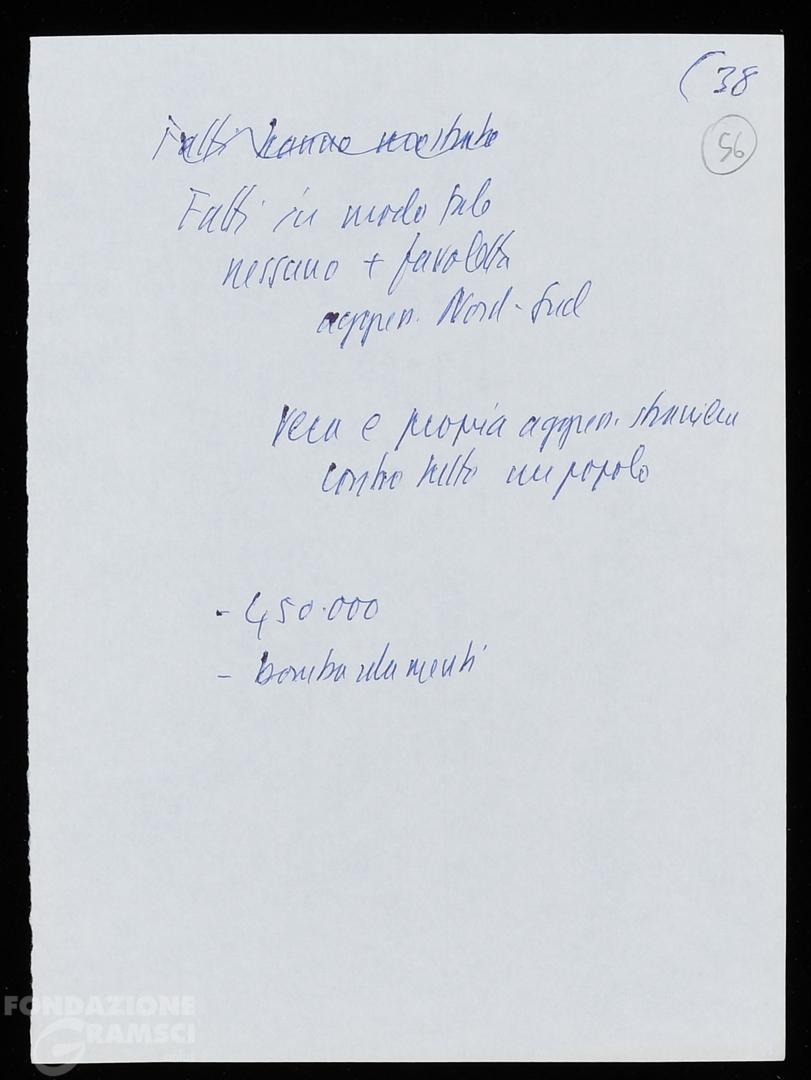 (38
56
Fatti hanno mostrato
Fatti in modo tale
nessuno + favoletta
aggres. Nord-Sud
vera e propria aggres. straniera
contro tutto un popolo
- 450.000
- bombardamenti
FONDAZIONE
GRAMSCI
onlus